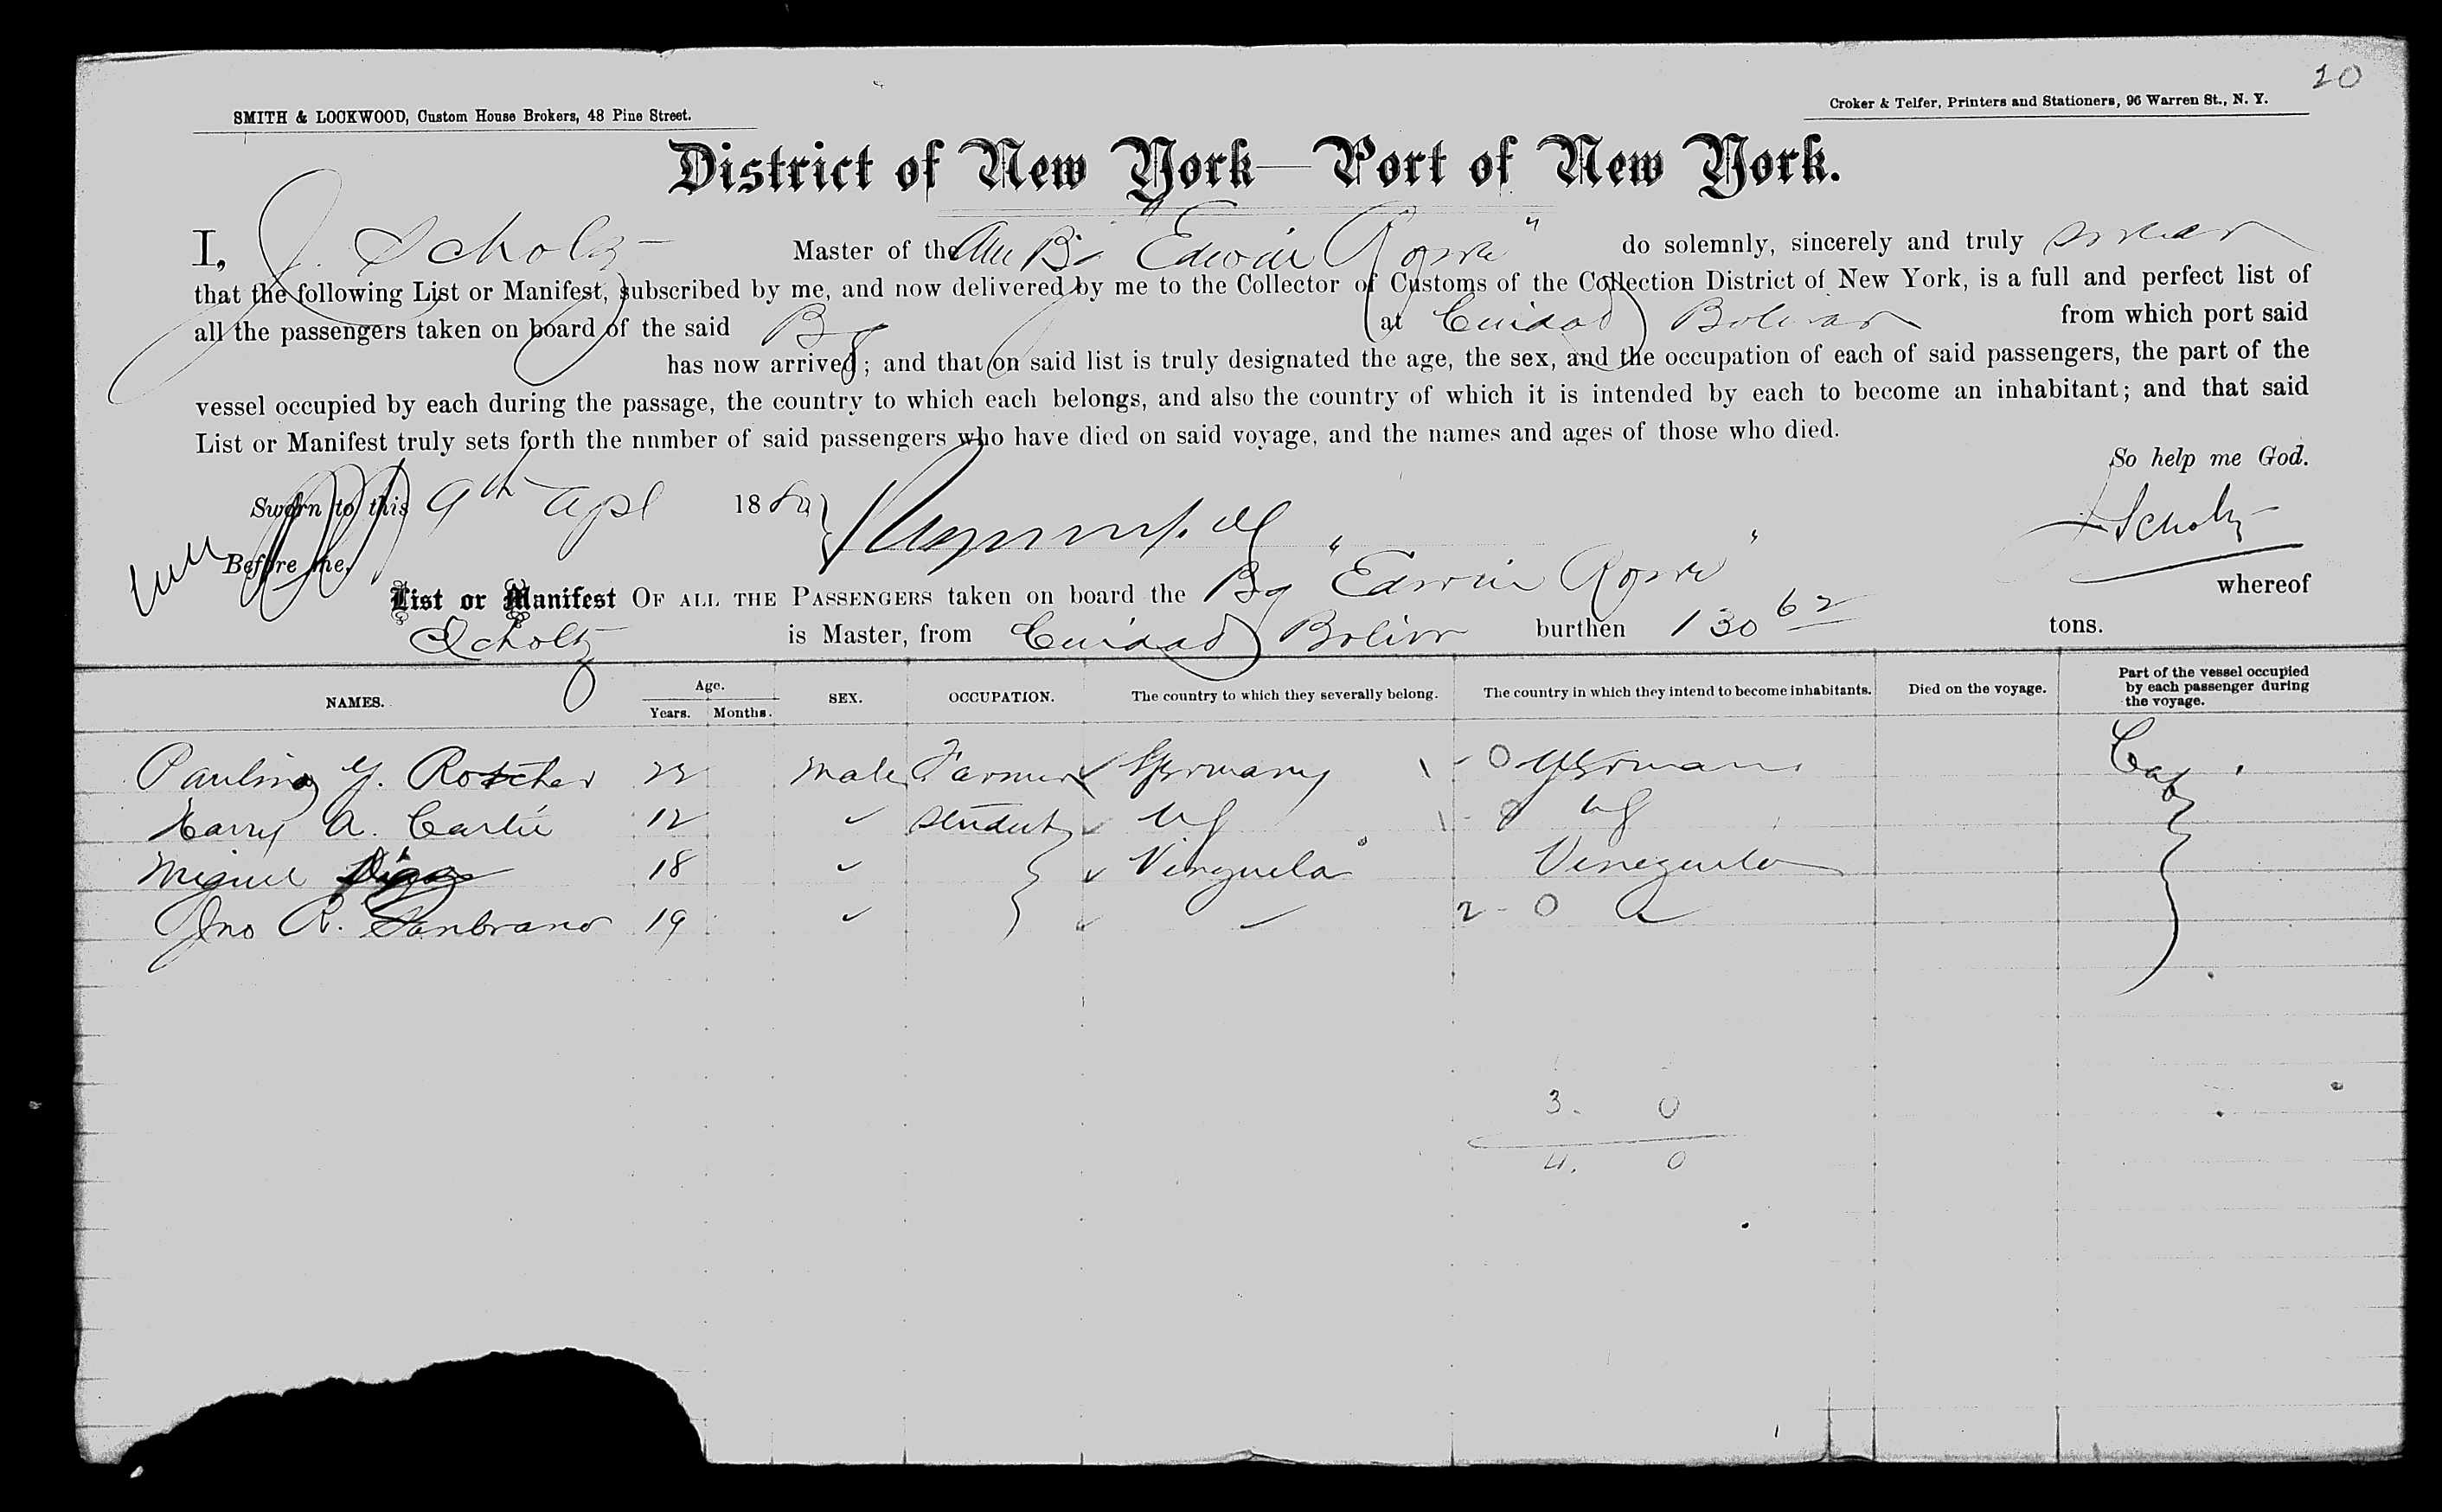 20
SMITH & LOCKWOOD, Custom House Brokers, 48 Pine Street.
Croker & Telfer, Printers and Stationers, 96 Warren St., N. Y.
District of New York—Port of New York.
I, J. Scholtz Master of the Am Bg "Edwin Rowe" do solemnly, sincerely and truly swear
that the following List or Manifest, subscribed by me, and now delivered by me to the Collector of Customs of the Collection District of New York, is a full and perfect list of
all the passengers taken on board of the said Bg at Cuidad Bolivar from which port said
has now arrived; and that on said list is truly designated the age, the sex, and the occupation of each of said passengers, the part of the
vessel occupied by each during the passage, the country to which each belongs, and also the country of which it is intended by each to become an inhabitant; and that said
List or Manifest truly sets forth the number of said passengers who have died on said voyage, and the names and ages of those who died.
So help me God.
Sworn to this 9th Apl 188
J Scholtz
Before me,
List or Manifest OF ALL THE PASSENGERS taken on board the Bg "Edwin Rowe" whereof
Scholtz is Master, from Cuidad Bolivr burthen 130 62 tons.
NAMES. Age. Years. Months. SEX. OCCUPATION. The country to which they severally belong. The country in which they intend to become inhabitants. Died on the voyage. Part of the vessel occupied by each passenger during the voyage.
Roscher 23 Male Farmer Germany Germany
Harry A. 12 Student US US
Miguel Diaz 18 Venezuela Venezuela
Jno R. Sanbrano 19 2 - 0
3. 0
4. 0